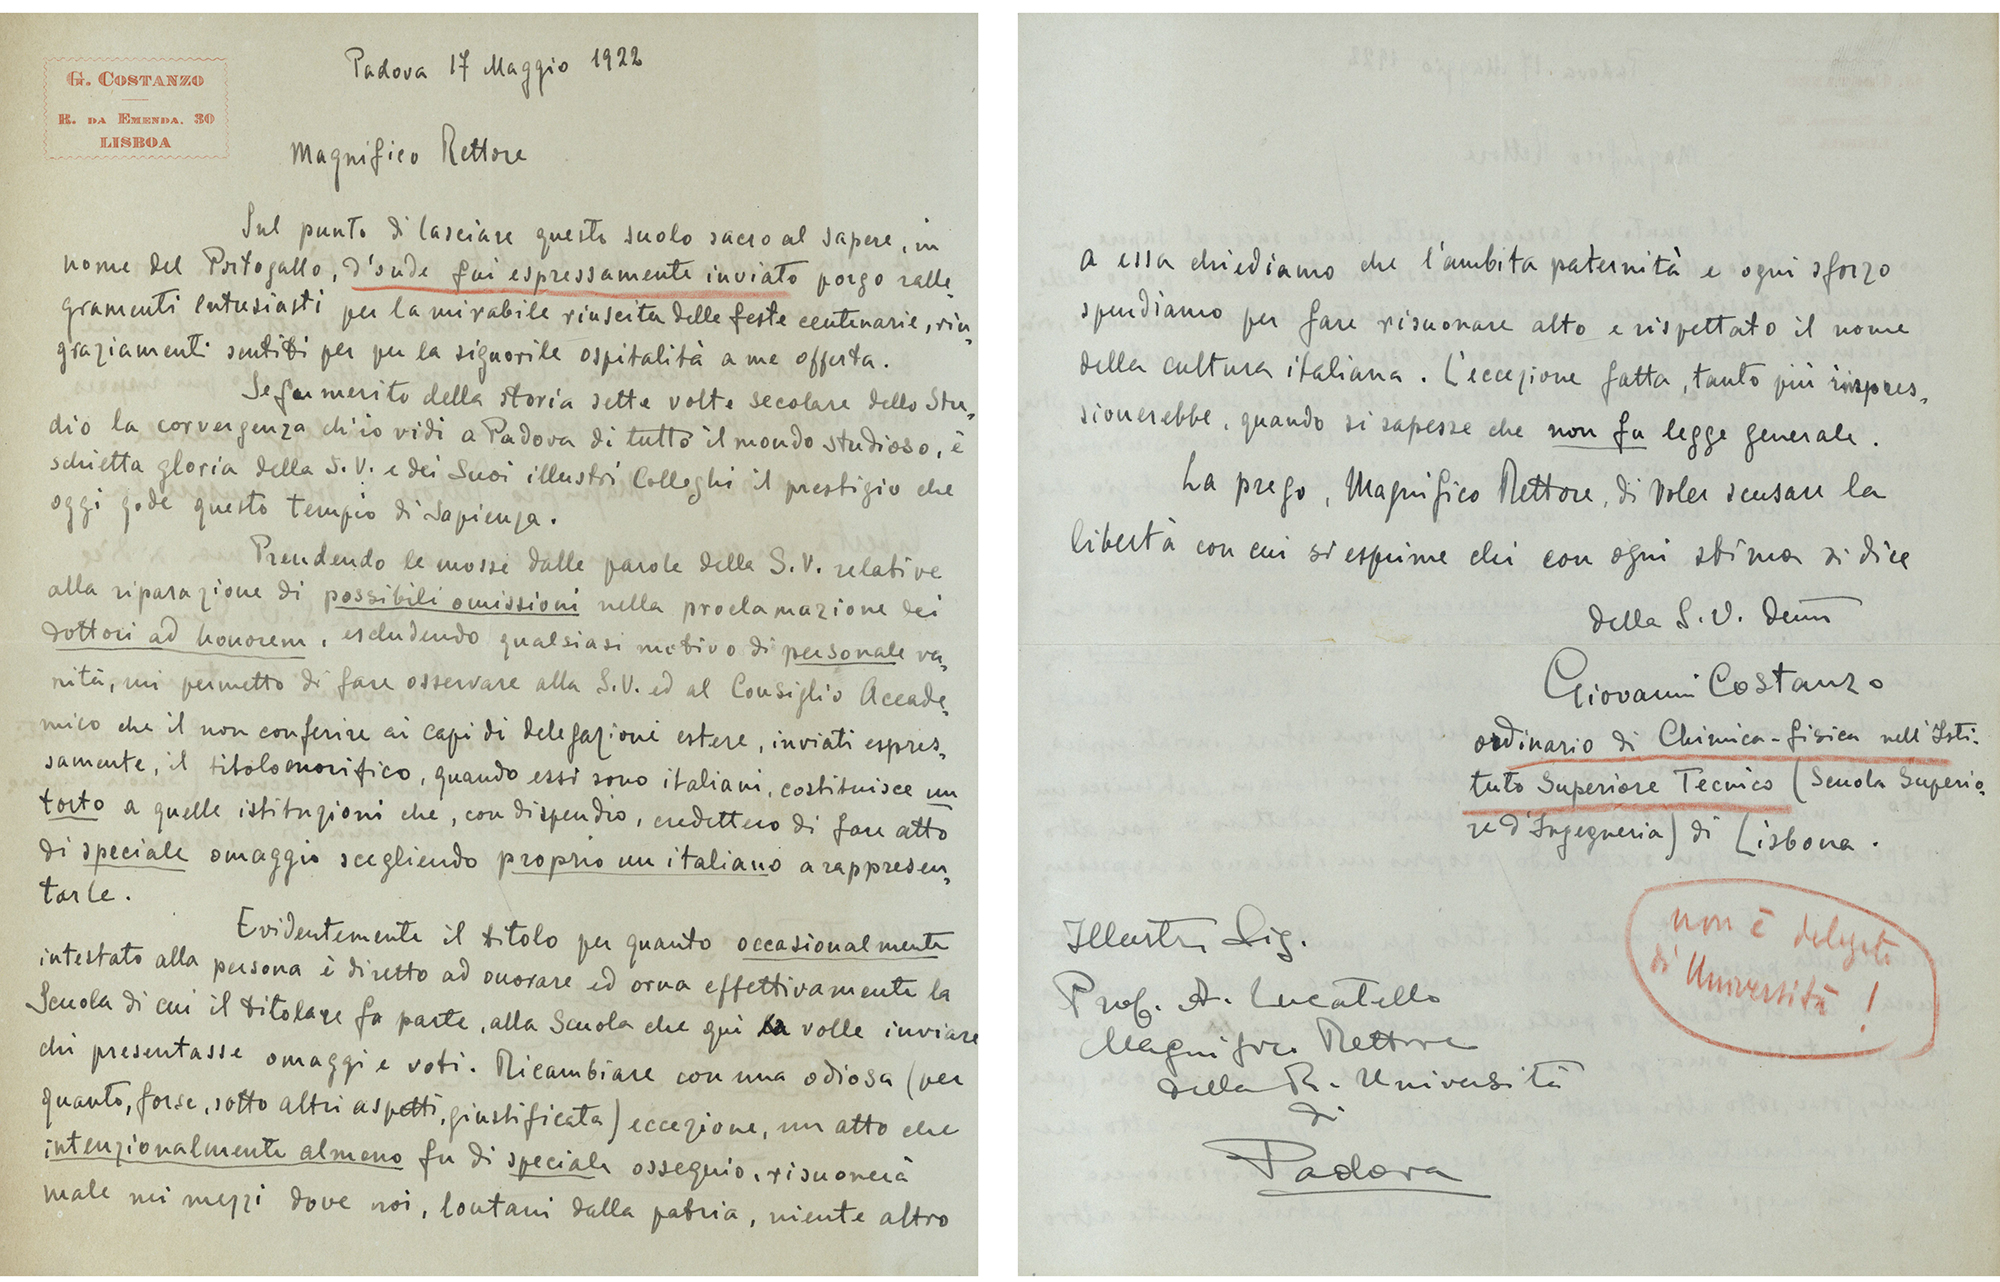 G. COSTANZO
R. DA EMENDA. 30
LISBOA
Padova 17 Maggio 1922
Magnifico Rettore
Sul punto di lasciare questo suolo sacro al sapere, in
nome del Portogallo, d'onde fui espressamente inviato porgo ralle-
gramenti entusiasti per la mirabile riuscita delle feste centenarie, rin-
graziamenti sentiti per per la signorile ospitalità a me offerta.
Se fu merito della storia sette volte secolare dello Stu-
dio la convergenza ch'io vidi a Padova di tutto il mondo studioso, è
schietta gloria della S.V. e dei Suoi illustri Colleghi il prestigio che
oggi gode questo tempio di Sapienza.
Prendendo le mosse dalle parole della S.V. relative
alla riparazione di possibili omissioni nella proclamazione dei
dottori ad honorem, escludendo qualsiasi motivo di personale va-
nità, mi permetto di fare osservare alla S.V. ed al Consiglio Accade-
mico che il non conferire ai capi di delegazioni estere, inviati espres-
samente, il titolo onorifico, quando essi sono italiani, costituisce un
torto a quelle istituzioni che, con dispendio, credettero di fare atto
di speciale omaggio scegliendo proprio un italiano a rappresen-
tarle.
Evidentemente il titolo per quanto occasionalmente
intestato alla persona è diretto ad onorare ed orna effettivamente la
Scuola di cui il titolare fa parte, alla Scuola che qui volle inviare
chi presentasse omaggi e voti. Ricambiare con una odiosa (per
quanto, forse, sotto altri aspetti, giustificata) eccezione, un atto che
intenzionalmente almeno fu di speciale ossequio, risuonerà
male nei mezzi dove noi, lontani dalla patria, niente altro
a essa chiediamo che l'ambita paternità e ogni sforzo
spendiamo per fare risuonare alto e rispettato il nome
della cultura italiana. L'eccezione fatta, tanto più impres-
sionerebbe, quando si sapesse che non fu legge generale.
La prego, Magnifico Rettore, di voler scusare la
libertà con cui si esprime chi con ogni stima si dice
della S.V. devmo
Giovanni Costanzo
ordinario di Chimica-fisica nell'Isti-
tuto Superiore Tecnico (Scuola Superio-
re d'Ingegneria) di Lisbona.
non è delegato
di Università!
Illustre Sig.
Prof. A. Lucatello
Magnifico Rettore
della R. Università
di
Padova